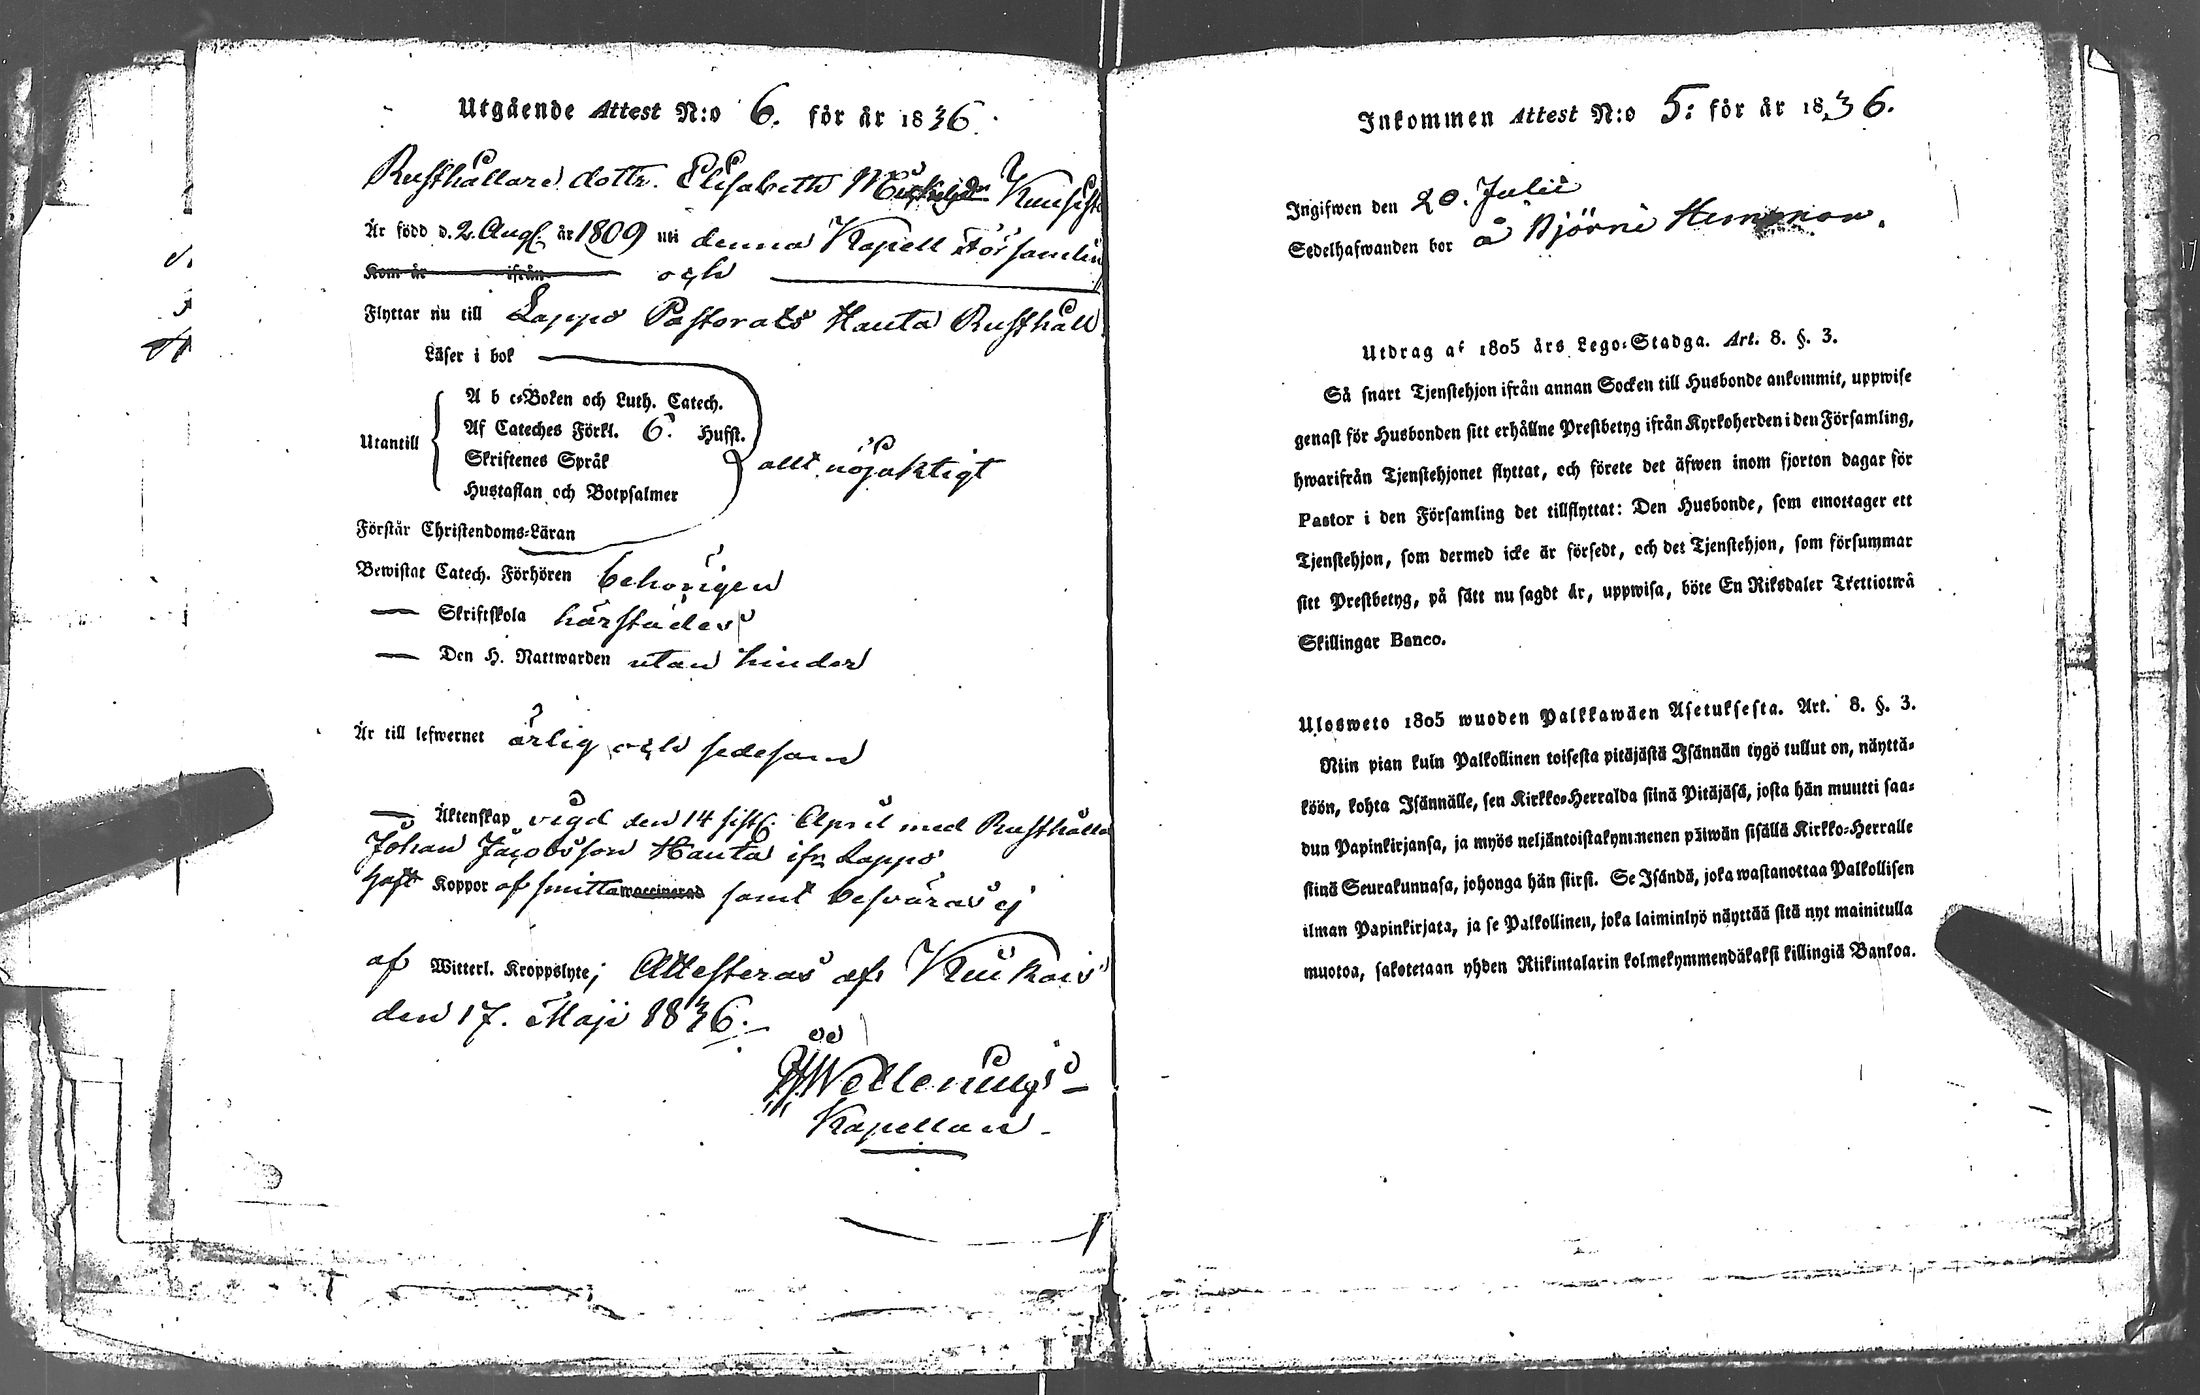 Utgående Attest N:o 6. för år 1836.
Rusthållare dottr. Elisabeth
Är född d. 2. Aug. år 1809 uti denna Kapell Församlin
Kom år ifrån och
Flyttar nu till Lappo Pastorats Hauta Rusthåll
Läser i bok
Utantill
A b c-Boken och Luth. Catech.
Af Cateches Förkl. 6. Hufst.
Skriftenes Språk
Hustaflan och Botpsalmer
allt nöjaktigt
Förstår Christendoms-Läran
Bewistat Catech. Förhören behörigen
— Skriftskola härstädes
— Den H. Nattwarden utan hinder
Är till lefwernet ärlig och sedesam
— Äktenskap vigd den 14 sistl. April med Rusthålla
Johan Jacobsson Hauta ifr. Lappo
Haft Koppor af smitta waccinerad samt besväras ej
af Witterl. Kroppslyte; Attesteras af
den 17. Maji 1836.
Kapellan
Inkommen Attest N:o 5: för år 1836.
Ingifwen den 20. Julii
Sedelhafwanden bor å Björni
Utdrag af 1805 års Lego-Stadga. Art. 8. §. 3.
Så snart Tjenstehjon ifrån annan Socken till Husbonde ankommit, uppwise
genast för Husbonden sitt erhållne Prestbetyg ifrån Kyrkoherden i den Församling,
hwarifrån Tjenstehjonet flyttat, och förete det äfwen inom fjorton dagar för
Pastor i den Församling det tillflyttat: Den Husbonde, som emottager ett
Tjenstehjon, som dermed icke är försedt, och det Tjenstehjon, som försummar
sitt Prestbetyg, på sätt nu sagdt är, uppwisa, böte En Riksdaler Trettiotwå
Skillingar Banco.
Ulosweto 1805 wuoden Palkkawäen Asetuksesta. Art. 8. §. 3.
Niin pian kuin Palkollinen toisesta pitäjästä Isännän tygö tullut on, näyttä-
köön, kohta Isännälle, sen Kirkko-Herralda siinä Pitäjäsä, josta hän muutti saa-
dun Papinkirjansa, ja myös neljäntoistakymmenen päiwän sisällä Kirkko-Herralle
siinä Seurakunnasa, johonga hän siirsi. Se Isändä, joka wastanottaa Palkollisen
ilman Papinkirjata, ja se Palkollinen, joka laiminlyö näyttää sitä nyt mainitulla
muotoa, sakotetaan yhden Riikintalarin kolmekymmendäkaksi killingiä Bankoa.